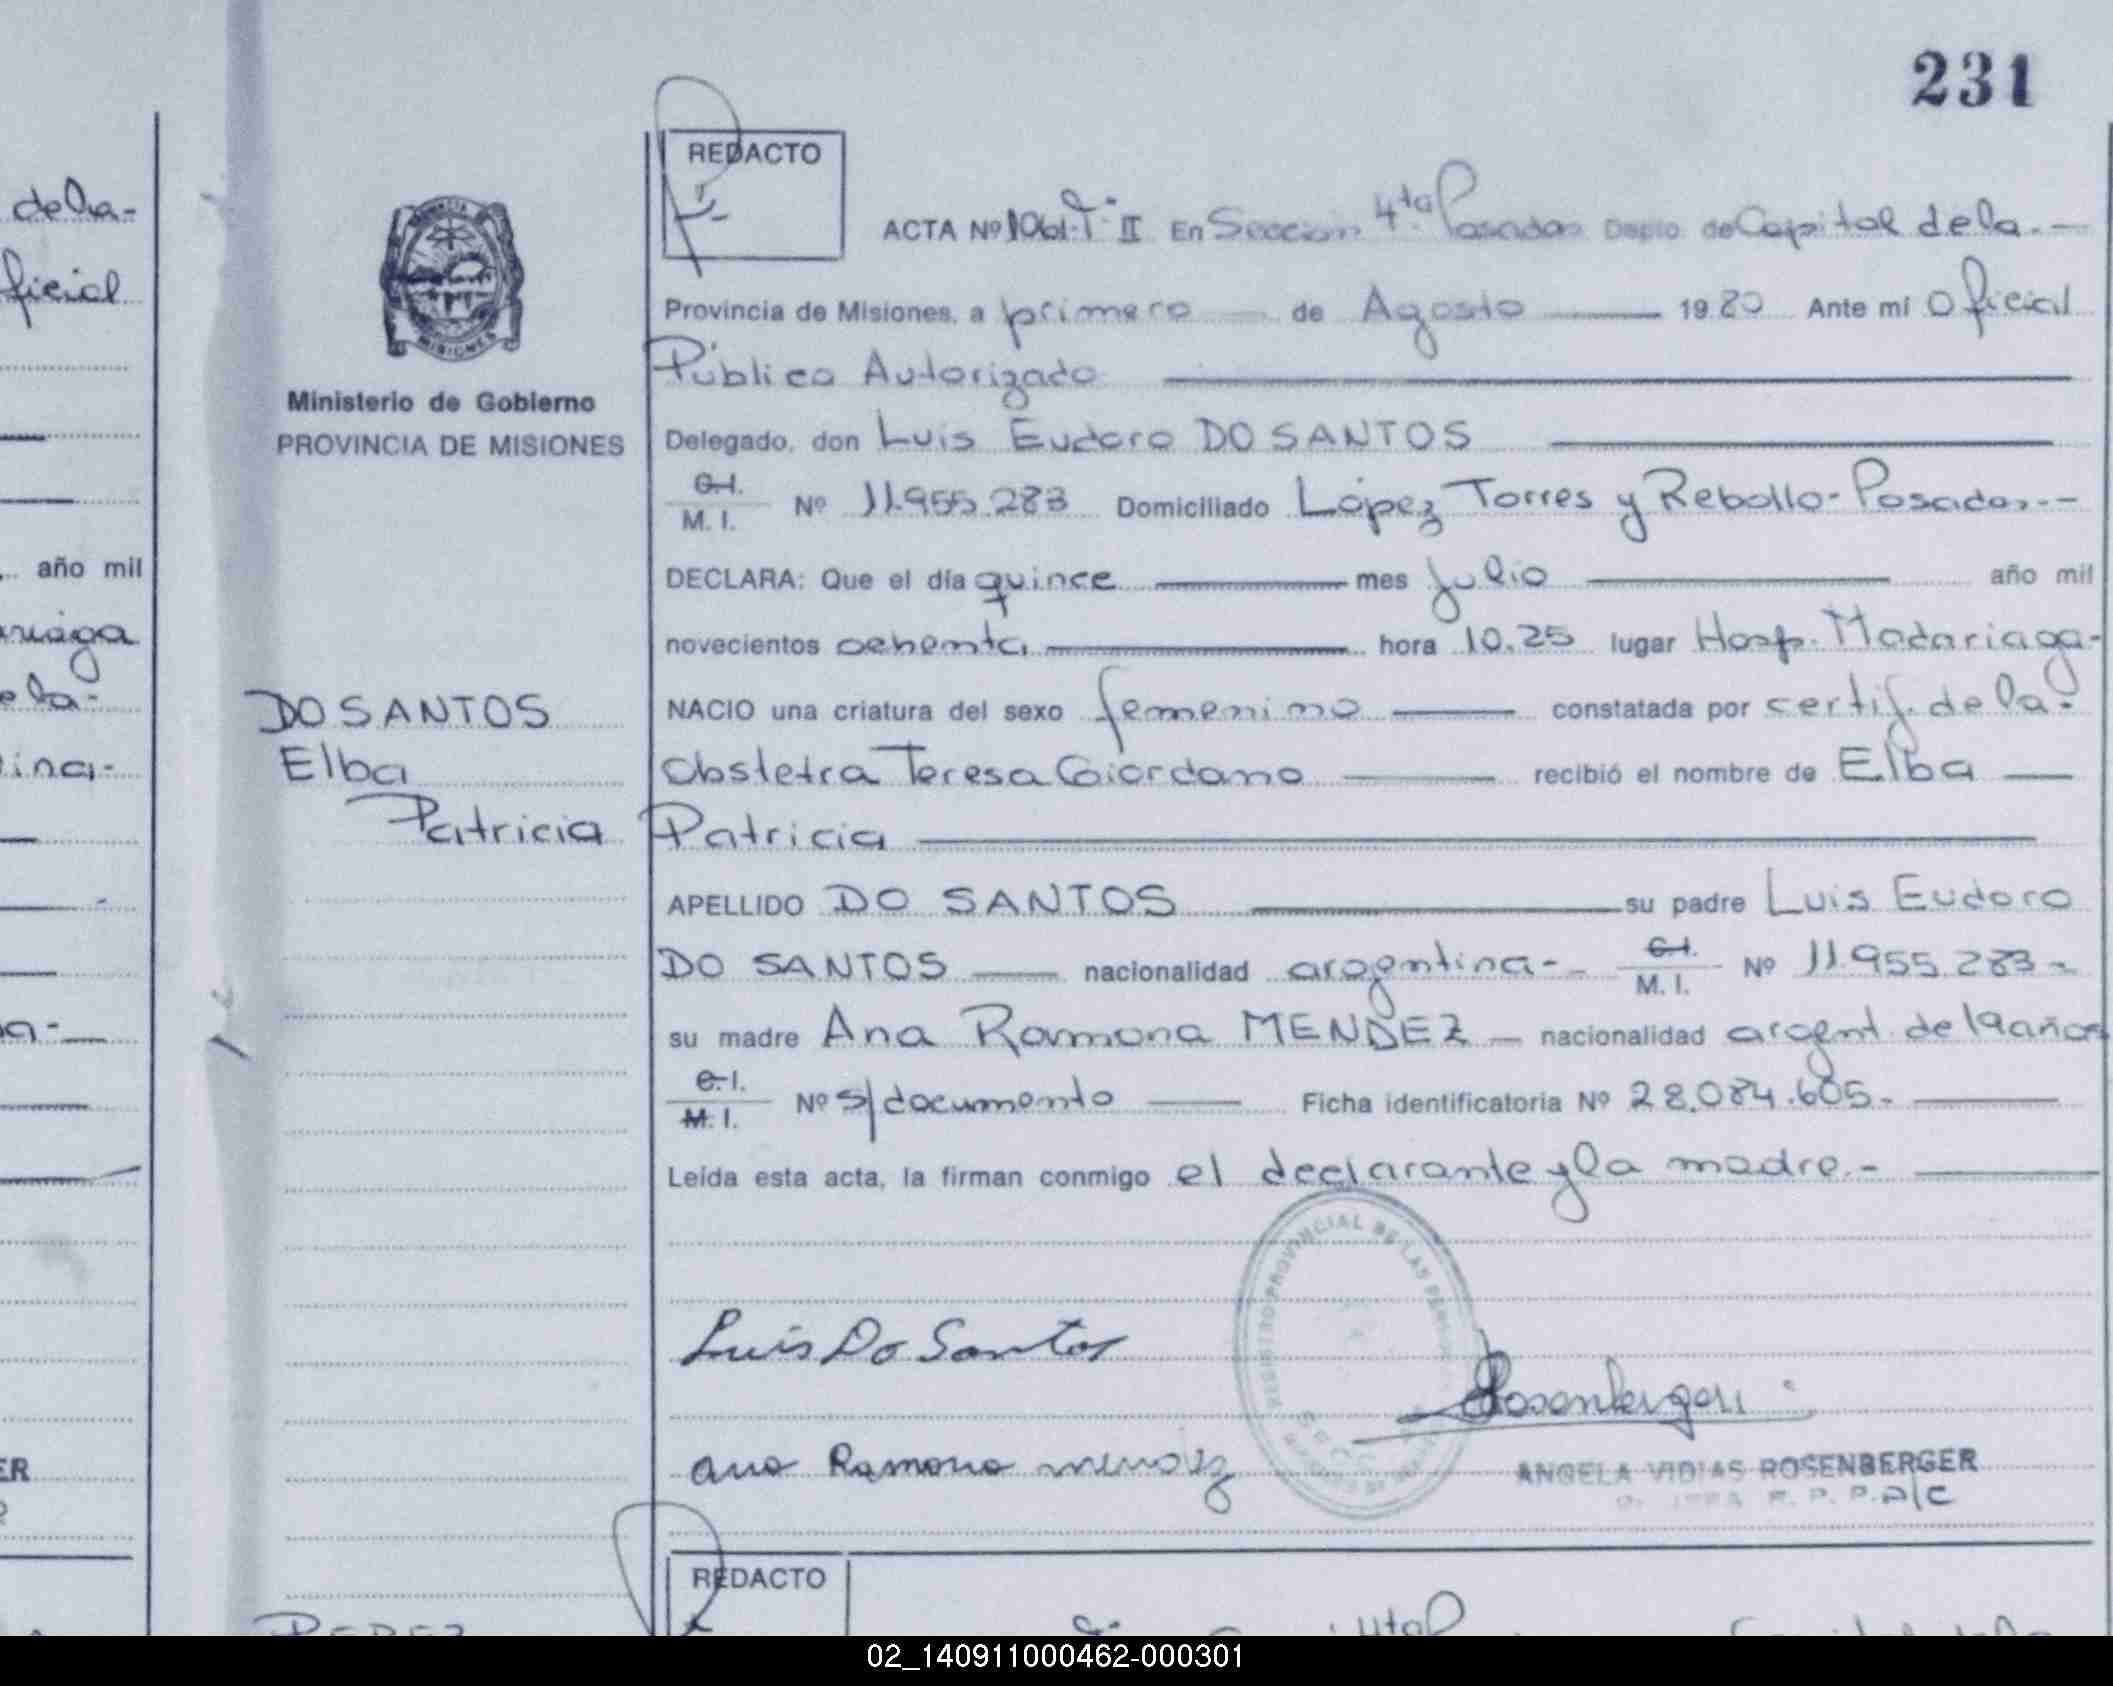 231
REDACTO
ACTA Nº 1061. Tº II En Sección 4ta. Posadas Depto. de Capital de la.-
Provincia de Misiones, a primero de Agosto 1980 Ante mí Oficial
Público Autorizado
Delegado, don Luis Eudoro DO SANTOS
C.I.
M. I. Nº 11.955.283 Domiciliado López Torres y Rebollo-Posadas.-
DECLARA: Que el día quince mes julio año mil
novecientos ochenta hora 10.25 lugar Hosp. Madariaga-
NACIO una criatura del sexo femenino constatada por certif. de la
Obstetra Teresa Giordano recibió el nombre de Elba
Patricia
APELLIDO DO SANTOS su padre Luis Eudoro
DO SANTOS nacionalidad argentina- C.I.
M. I. Nº 11.955.283-
su madre Ana Ramona MENDEZ nacionalidad argent. de 19 años
C. I.
M. I. Nº s/documento Ficha identificatoria Nº 28.084.605.-
Leída esta acta, la firman conmigo el declarante y la madre.-
Luis Do Santos
Ana Ramona mendez
ANGELA VIDIAS ROSENBERGER
R. P. P. A/C
REGISTRO PROVINCIAL DE LAS PERSONAS
Ministerio de Gobierno
PROVINCIA DE MISIONES
MISIONES
DO SANTOS
Elba
Patricia
de la-
ficial
año mil
ariaga
e la-
tina-
a-
ER
REDACTO
PEREZ
02_140911000462-000301